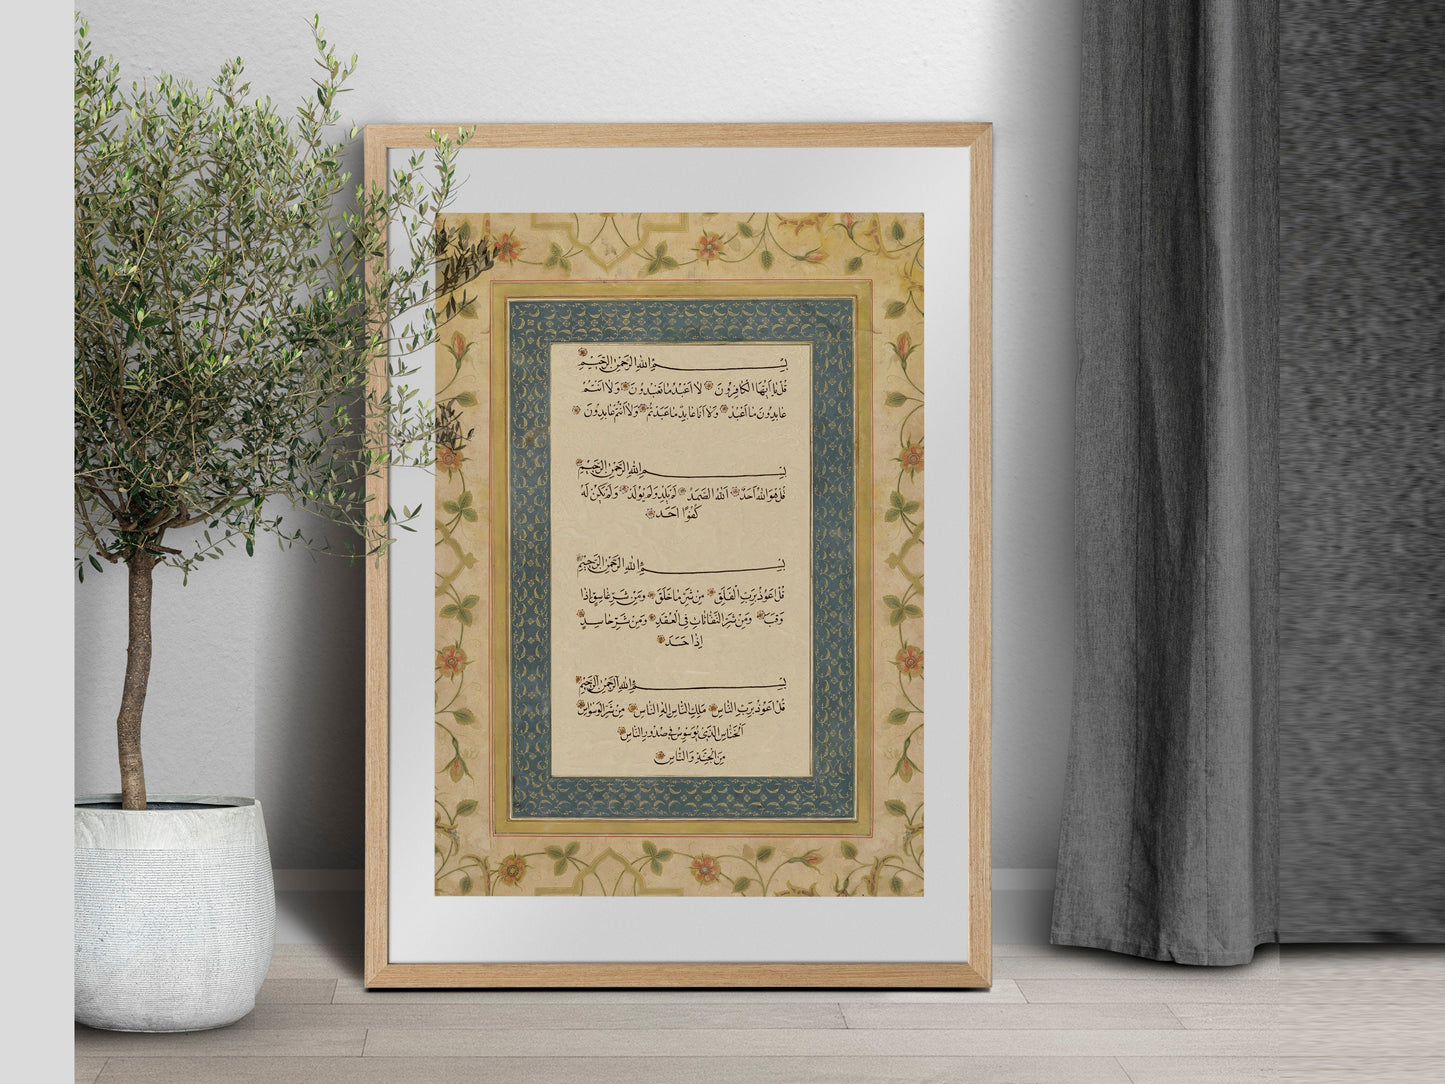 بِسْمِ اللهِ الرَّحْمٰنِ الرَّحِيْمِ
قُلْ يَا اَيُّهَا الْكَافِرُونَ لَا اَعْبُدُ مَا تَعْبُدُونَ وَلَا اَنْتُمْ
عَابِدُونَ مَا اَعْبُدُ وَلَا اَنَا عَابِدٌ مَا عَبَدْتُمْ وَلَا اَنْتُمْ عَابِدُونَ
بِسْمِ اللهِ الرَّحْمٰنِ الرَّحِيْمِ
قُلْ هُوَ اللهُ اَحَدٌ اَللهُ الصَّمَدُ لَمْ يَلِدْ وَلَمْ يُوْلَدْ وَلَمْ يَكُنْ لَهُ
كُفُوًا اَحَدٌ
بِسْمِ اللهِ الرَّحْمٰنِ الرَّحِيْمِ
قُلْ اَعُوْذُ بِرَبِّ الْفَلَقِ مِنْ شَرِّ مَا خَلَقَ وَمِنْ شَرِّ غَاسِقٍ اِذَا
وَقَبَ وَمِنْ شَرِّ النَّفَّاثَاتِ فِي الْعُقَدِ وَمِنْ شَرِّ حَاسِدٍ
اِذَا حَسَدَ
بِسْمِ اللهِ الرَّحْمٰنِ الرَّحِيْمِ
قُلْ اَعُوْذُ بِرَبِّ النَّاسِ مَلِكِ النَّاسِ اِلٰهِ النَّاسِ مِنْ شَرِّ الْوَسْوَاسِ
اَلْخَنَّاسِ الَّذِيْ يُوَسْوِسُ فِيْ صُدُوْرِ النَّاسِ
مِنَ الْجِنَّةِ وَالنَّاسِ